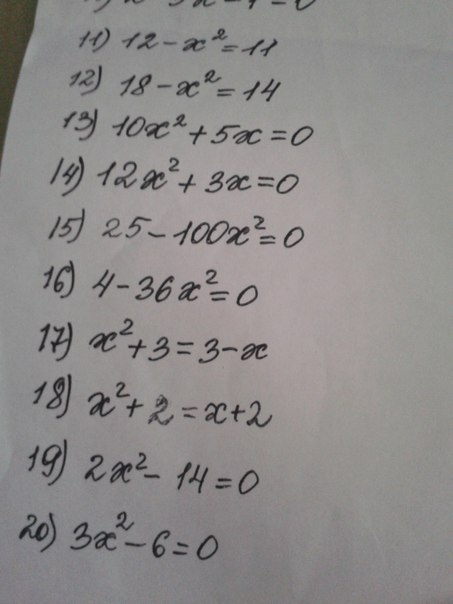 11) 12 - x² = 11
12) 18 - x² = 14
13) 10x² + 5x = 0
14) 12x² + 3x = 0
15) 25 - 100x² = 0
16) 4 - 36x² = 0
17) x² + 3 = 3 - x
18) x² + 2 = x + 2
19) 2x² - 14 = 0
20) 3x² - 6 = 0